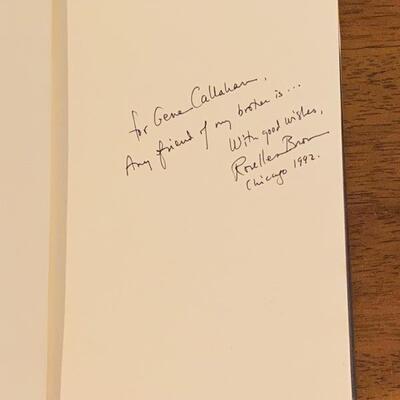 for Gene Callahan,
Any friend of my brother is...
With good wishes,
Rosellen Brown
Chicago 1992.